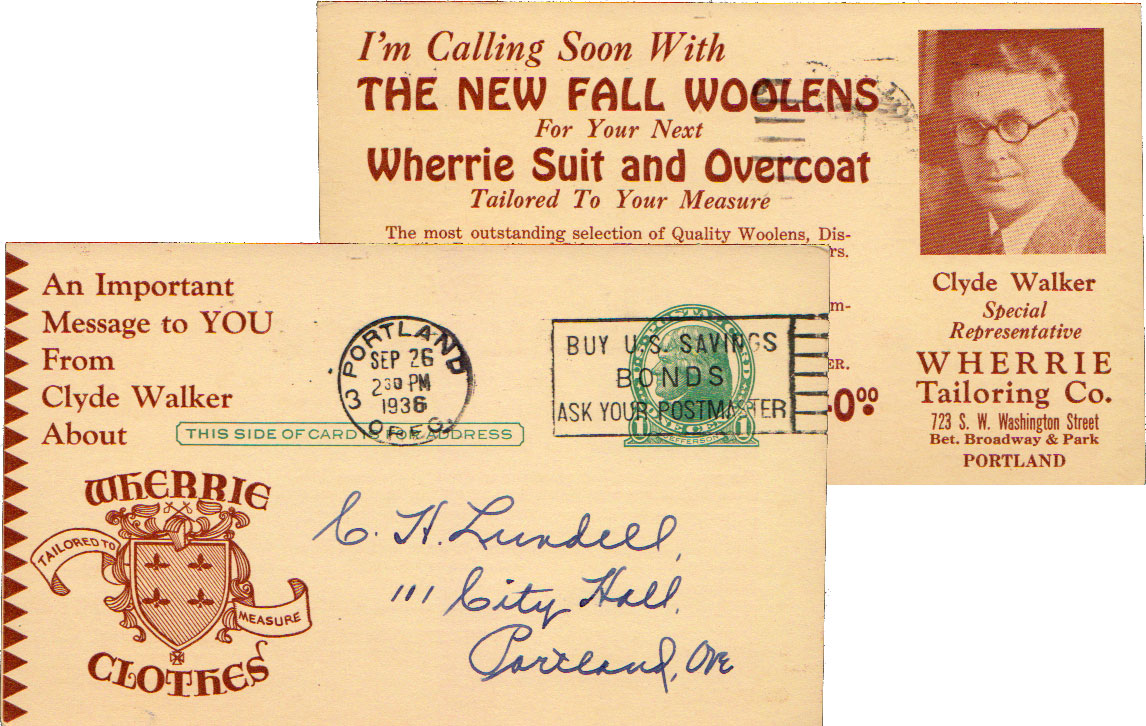 I'm Calling Soon With
THE NEW FALL WOOLENS
For Your Next
Wherrie Suit and Overcoat
Tailored To Your Measure
The most outstanding selection of Quality Woolens, Dis-
rs.
m-
ER.
0⁰⁰
Clyde Walker
Special
Representative
WHERRIE
Tailoring Co.
723 S. W. Washington Street
Bet. Broadway & Park
PORTLAND
An Important
Message to YOU
From
Clyde Walker
About
WHERRIE
TAILORED TO
MEASURE
CLOTHES
PORTLAND
SEP 26
2 30 PM
1936
3
OREG.
THIS SIDE OF CARD IS FOR ADDRESS
BUY U.S. SAVINGS
BONDS
ASK YOUR POSTMASTER
1 JEFFERSON 1
C. H. Lundell,
111 City Hall,
Portland, Ore